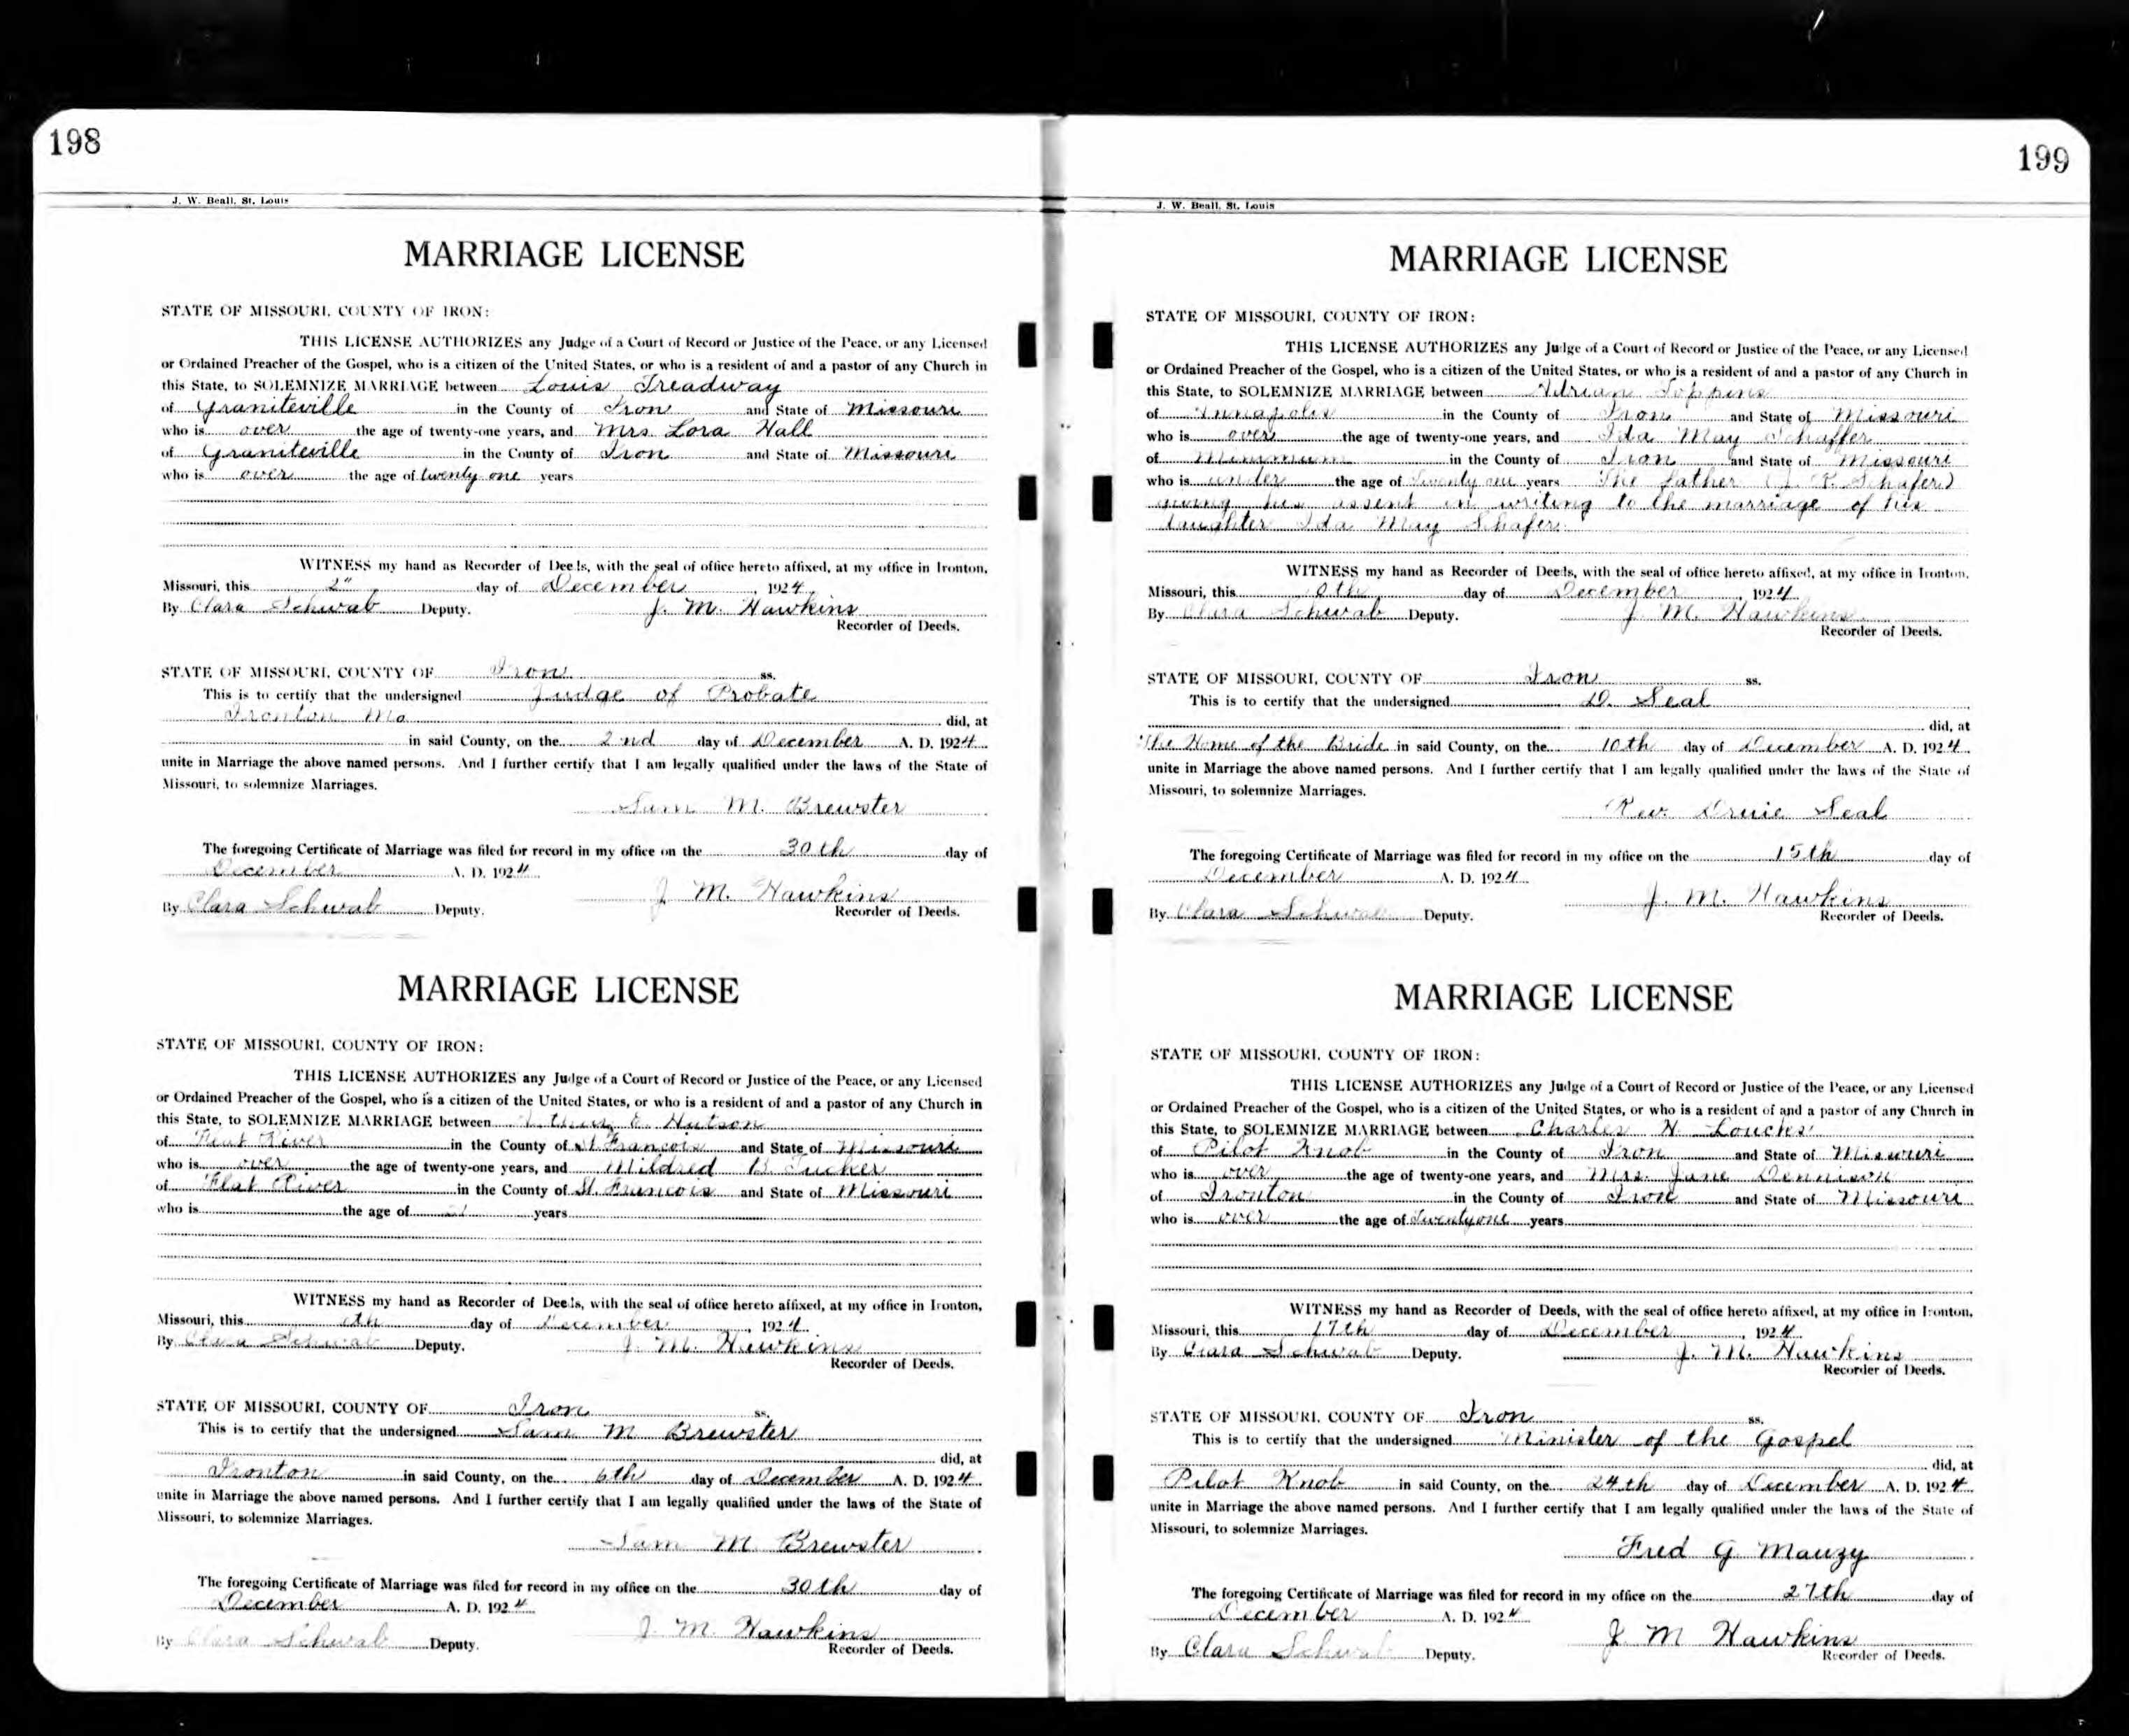 198
J. W. Beall, St. Louis
MARRIAGE LICENSE
STATE OF MISSOURI, COUNTY OF IRON:
THIS LICENSE AUTHORIZES any Judge of a Court of Record or Justice of the Peace, or any Licensed
or Ordained Preacher of the Gospel, who is a citizen of the United States, or who is a resident of and a pastor of any Church in
this State, to SOLEMNIZE MARRIAGE between Louis Treadway
of Graniteville in the County of Iron and State of Missouri
who is over the age of twenty-one years, and Mrs. Lora Hall
of Graniteville in the County of Iron and State of Missouri
who is over the age of twenty one years
WITNESS my hand as Recorder of Deeds, with the seal of office hereto affixed, at my office in Ironton,
Missouri, this 2" day of December, 1924.
By Clara Schwab Deputy. J. M. Hawkins
Recorder of Deeds.
STATE OF MISSOURI, COUNTY OF Iron ss.
This is to certify that the undersigned Judge of Probate
Ironton Mo did, at
in said County, on the 2nd day of December A. D. 1924
unite in Marriage the above named persons. And I further certify that I am legally qualified under the laws of the State of
Missouri, to solemnize Marriages.
Sam M. Brewster
The foregoing Certificate of Marriage was filed for record in my office on the 30th day of
December A. D. 1924
J. M. Hawkins
By Clara Schwab Deputy. Recorder of Deeds.
MARRIAGE LICENSE
STATE OF MISSOURI, COUNTY OF IRON:
THIS LICENSE AUTHORIZES any Judge of a Court of Record or Justice of the Peace, or any Licensed
or Ordained Preacher of the Gospel, who is a citizen of the United States, or who is a resident of and a pastor of any Church in
this State, to SOLEMNIZE MARRIAGE between E. Hutson
of Flat River in the County of St Francois and State of Missouri
who is over the age of twenty-one years, and Mildred B. Tucker
of Flat River in the County of St. Francois and State of Missouri
who is the age of 21 years
WITNESS my hand as Recorder of Deeds, with the seal of office hereto affixed, at my office in Ironton,
Missouri, this day of December, 1924.
By Clara Schwab Deputy. J. M. Hawkins
Recorder of Deeds.
STATE OF MISSOURI, COUNTY OF Iron ss.
This is to certify that the undersigned Sam M Brewster
did, at
Ironton in said County, on the 6th day of December A. D. 1924
unite in Marriage the above named persons. And I further certify that I am legally qualified under the laws of the State of
Missouri, to solemnize Marriages.
Sam M. Brewster
The foregoing Certificate of Marriage was filed for record in my office on the 30th day of
December A. D. 1924
J. M. Hawkins
By Clara Schwab Deputy. Recorder of Deeds.
199
J. W. Beall, St. Louis
MARRIAGE LICENSE
STATE OF MISSOURI, COUNTY OF IRON:
THIS LICENSE AUTHORIZES any Judge of a Court of Record or Justice of the Peace, or any Licensed
or Ordained Preacher of the Gospel, who is a citizen of the United States, or who is a resident of and a pastor of any Church in
this State, to SOLEMNIZE MARRIAGE between Adrian Toppins
of Annapolis in the County of Iron and State of Missouri
who is over the age of twenty-one years, and Ida May Schaffer
of in the County of Iron and State of Missouri
who is under the age of Twenty one years The father (J. R. Schafer)
giving his assent in writing to the marriage of his
daughter Ida May Schafer.
WITNESS my hand as Recorder of Deeds, with the seal of office hereto affixed, at my office in Ironton,
Missouri, this day of December, 1924.
By Clara Schwab Deputy. J. M. Hawkins
Recorder of Deeds.
STATE OF MISSOURI, COUNTY OF Iron ss.
This is to certify that the undersigned D. Seal
did, at
The Home of the Bride in said County, on the 10th day of December A. D. 1924
unite in Marriage the above named persons. And I further certify that I am legally qualified under the laws of the State of
Missouri, to solemnize Marriages.
Rev. Druie Seal
The foregoing Certificate of Marriage was filed for record in my office on the 15th day of
December A. D. 1924
J. M. Hawkins
By Clara Schwab Deputy. Recorder of Deeds.
MARRIAGE LICENSE
STATE OF MISSOURI, COUNTY OF IRON:
THIS LICENSE AUTHORIZES any Judge of a Court of Record or Justice of the Peace, or any Licensed
or Ordained Preacher of the Gospel, who is a citizen of the United States, or who is a resident of and a pastor of any Church in
this State, to SOLEMNIZE MARRIAGE between Charles H. Loucks
of Pilot Knob in the County of Iron and State of Missouri
who is over the age of twenty-one years, and Mrs. Jane Dennison
of Ironton in the County of Iron and State of Missouri
who is over the age of Twentyone years
WITNESS my hand as Recorder of Deeds, with the seal of office hereto affixed, at my office in Ironton,
Missouri, this 17th day of December, 1924
By Clara Schwab Deputy. J. M. Hawkins
Recorder of Deeds.
STATE OF MISSOURI, COUNTY OF Iron ss.
This is to certify that the undersigned Minister of the Gospel
did, at
Pilot Knob in said County, on the 24th day of December A. D. 1924
unite in Marriage the above named persons. And I further certify that I am legally qualified under the laws of the State of
Missouri, to solemnize Marriages.
Fred G. Mauzy
The foregoing Certificate of Marriage was filed for record in my office on the 27th day of
December A. D. 1924
J M Hawkins
By Clara Schwab Deputy. Recorder of Deeds.